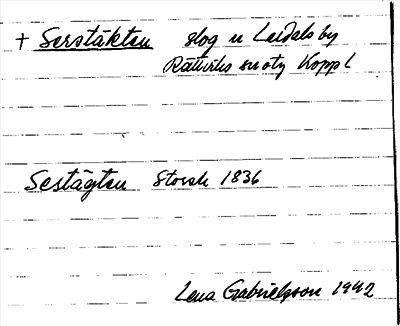 + Serstäkten skog u Leidalsby
Rättviks sn o tg Koppl
Sestägten Storsk 1836
Lena Gabrielsson 1942